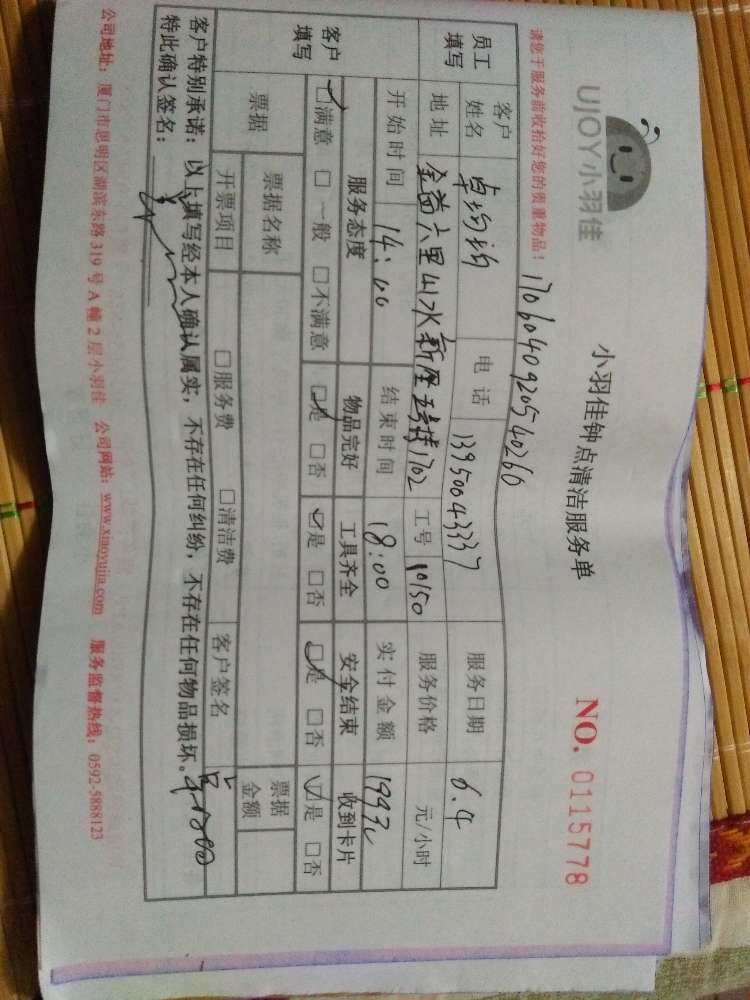 UJOY小羽佳
小羽佳钟点清洁服务单
NO. 0115778
请您于服务前收拾好您的贵重物品！
1706040920540260
员工填写 客户姓名 卓 电话 13950043337 服务日期 6.4
地址 金益六里山水新座 1702 工号 10150 服务价格 元/小时
开始时间 14:00 结束时间 18:00 实付金额
客户填写 服务态度 物品完好 工具齐全 安全结束 收到卡片
☑满意 □一般 □不满意 ☑是 □否 ☑是 □否 ☑是 □否 ☑是 □否
票据 票据名称 票据金额
开票项目 □服务费 □清洁费 客户签名
客户特别承诺：以上填写经本人确认属实，不存在任何纠纷，不存在任何物品损坏。
特此确认签名：
公司地址：厦门市思明区湖滨东路319号A幢2层小羽佳 公司网站：www.xiaoyujia.com 服务监督热线：0592-5888123